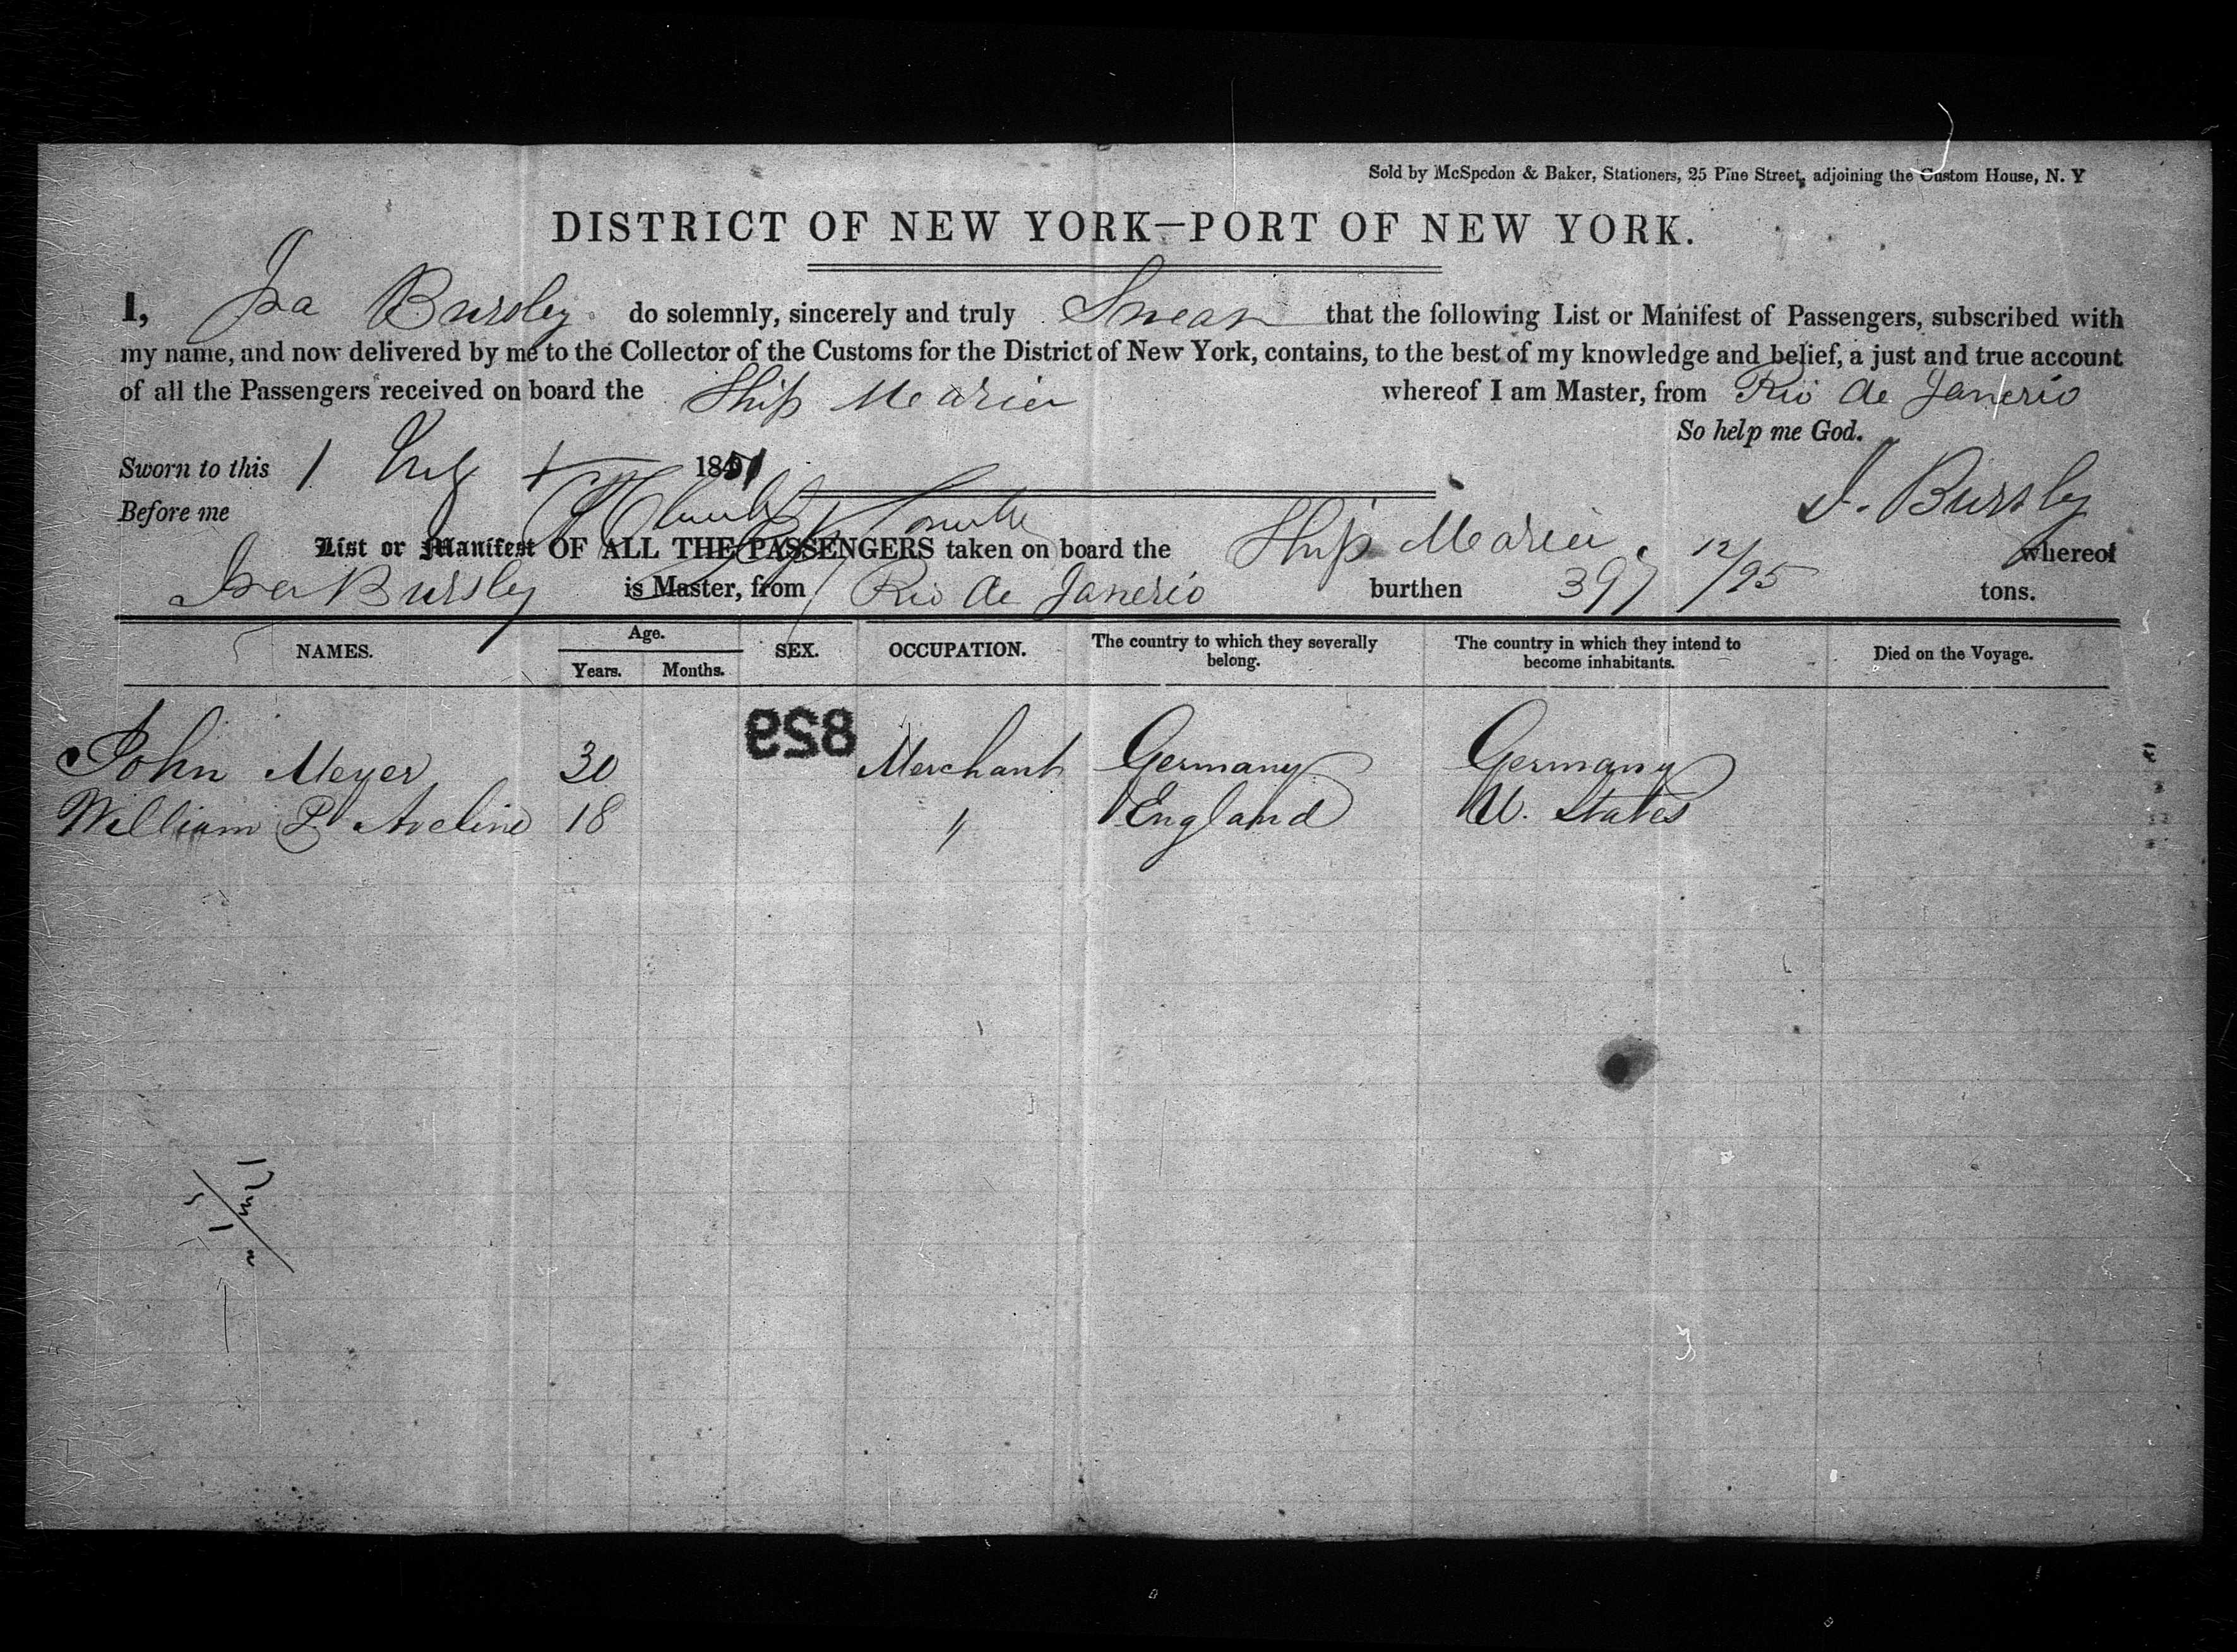 Sold by McSpedon & Baker, Stationers, 25 Pine Street, adjoining the Custom House, N. Y
DISTRICT OF NEW YORK—PORT OF NEW YORK.
I, Ira Bursley do solemnly, sincerely and truly Swear that the following List or Manifest of Passengers, subscribed with
my name, and now delivered by me to the Collector of the Customs for the District of New York, contains, to the best of my knowledge and belief, a just and true account
of all the Passengers received on board the Ship Maria whereof I am Master, from Rio de Janerio
So help me God.
Sworn to this 1 1851
I. Bursley
Before me
List or Manifest OF ALL THE PASSENGERS taken on board the Ship Maria. whereof
Ira Bursley is Master, from Rio de Janerio burthen 397 12/95 tons.
NAMES. Age. Years. Months. SEX. OCCUPATION. The country to which they severally belong. The country in which they intend to become inhabitants. Died on the Voyage.
829
John Meyer 30 Merchant Germany Germany
William P Aveline 18 " England U. States